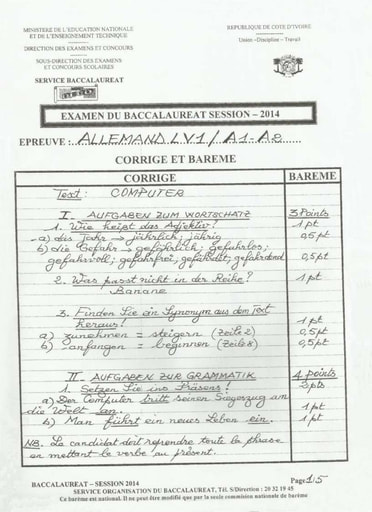 MINISTERE DE L'EDUCATION NATIONALE
ET DE L'ENSEIGNEMENT TECHNIQUE
DIRECTION DES EXAMENS ET CONCOURS
SOUS-DIRECTION DES EXAMENS
ET CONCOURS SCOLAIRES
SERVICE BACCALAUREAT
REPUBLIQUE DE COTE D'IVOIRE
Union –Discipline – Travail
EXAMEN DU BACCALAUREAT SESSION – 2014
EPREUVE : ALLEMAND LV1 / A1-A2
CORRIGE ET BAREME
CORRIGE BAREME
Text : COMPUTER
I - AUFGABEN ZUM WORTSCHATZ 3 Points
1. Wie heißt das Adjektiv? 1 pt
a) das Jahr → jährlich; jährig 0,5 pt
b) die Gefahr → gefährlich; gefahrlos;
gefahrvoll; gefahrfrei; gefährdet; gefährdend 0,5 pt
2. Was passt nicht in der Reihe? 1 pt
Banane
3. Finden Sie ein Synonym aus dem Text
heraus! 1 pt
a) zunehmen = steigern (Zeile 2) 0,5 pt
b) anfangen = beginnen (Zeile 8) 0,5 pt
II - AUFGABEN ZUR GRAMMATIK 4 points
1. Setzen Sie ins Präsens! 2 pts
a) Der Computer tritt seinen Siegeszug an
die Welt an. 1 pt
b) Man führt ein neues Leben ein. 1 pt
NB. Le candidat doit reprendre toute la phrase
en mettant le verbe au présent.
BACCALAUREAT – SESSION 2014 Page 1/5
SERVICE ORGANISATION DU BACCALAUREAT, Tél. S/Direction : 20 32 19 45
Ce barème est national. Il ne peut être modifié que par la seule commission nationale de barème